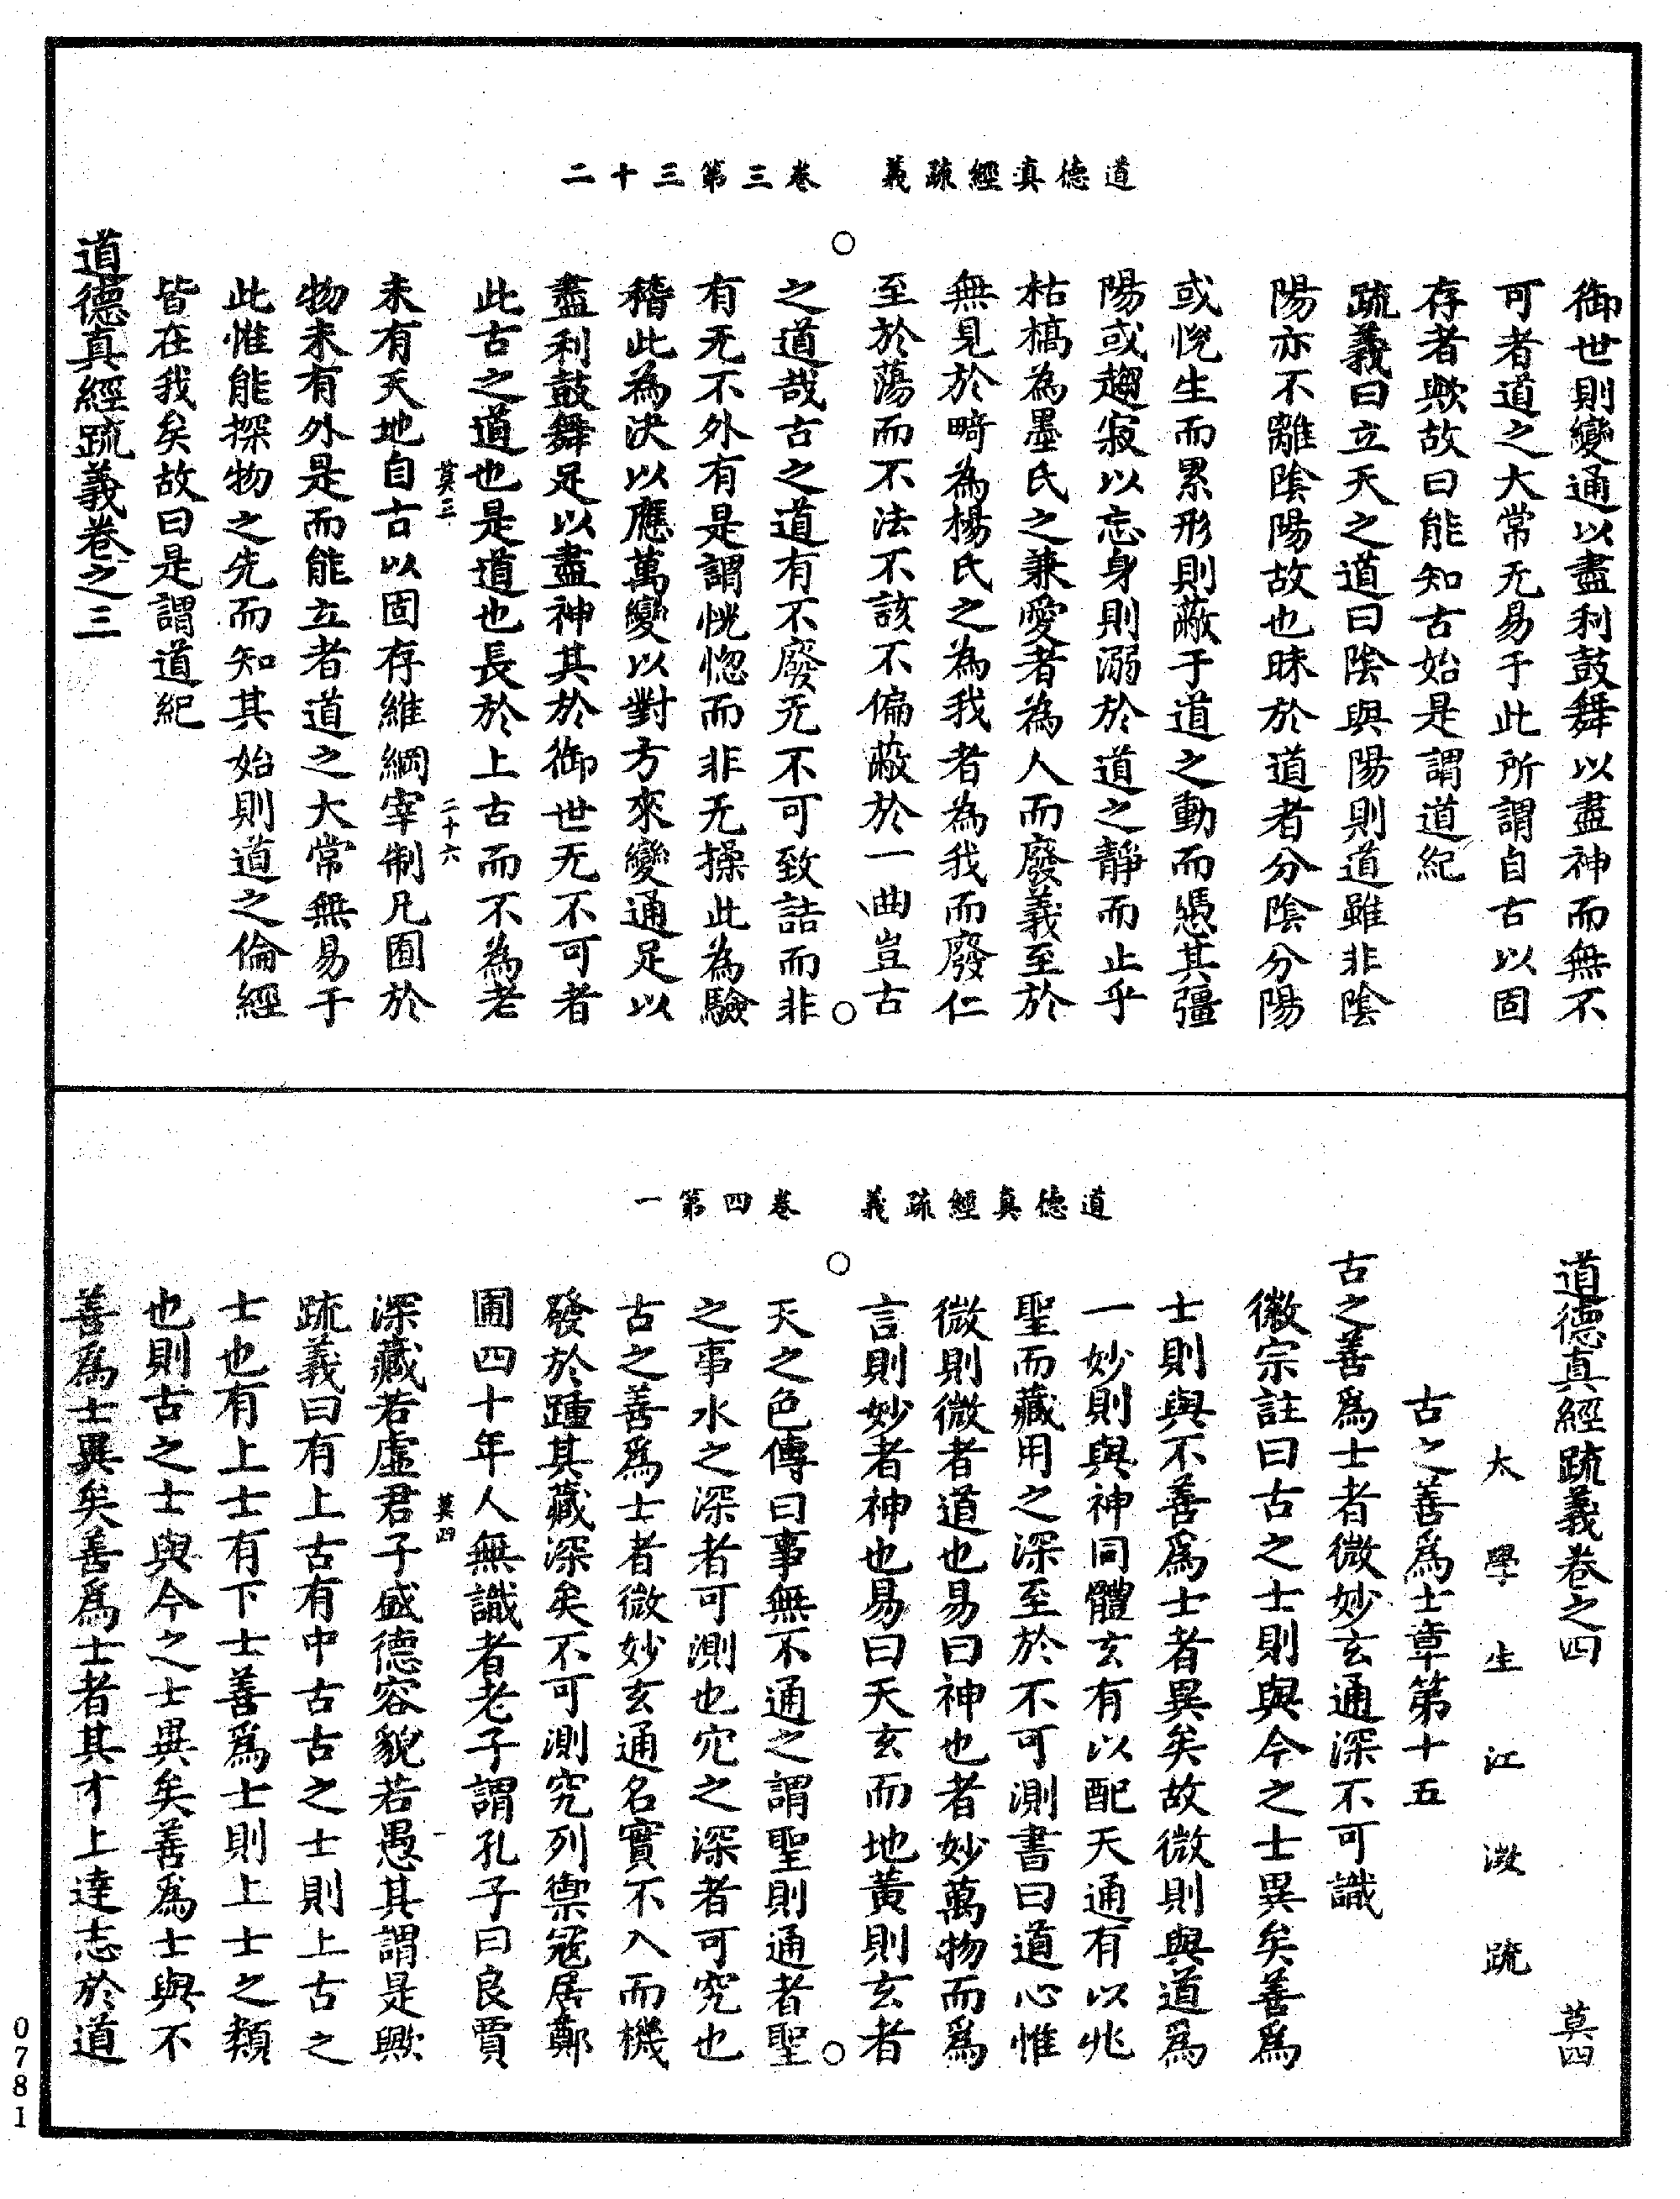 道德真經疏義　卷三第三十二
御世則變通以盡利鼓舞以盡神而無不
可者道之大常无易于此所謂自古以固
存者歟故曰能知古始是謂道紀
疏義曰立天之道曰陰與陽則道雖非陰
陽亦不離陰陽故也昧於道者分陰分陽
或悅生而累形則蔽于道之動而憑其彊
陽或趨寂以忘身則溺於道之靜而止乎
枯槁為墨氏之兼愛者為人而廢義至於
無見於畸為楊氏之為我者為我而廢仁
至於蕩而不法不該不偏蔽於一曲豈古
之道哉古之道有不廢无不可致詰而非
有无不外有是謂恍惚而非无操此為驗
稽此為決以應萬變以對方來變通足以
盡利鼓舞足以盡神其於御世无不可者
此古之道也是道也長於上古而不為老
莫三
二十六
未有天地自古以固存維綱宰制凡囿於
物未有外是而能立者道之大常無易于
此惟能探物之先而知其始則道之倫經
皆在我矣故曰是謂道紀
道德真經疏義卷之三
道德真經疏義　卷四第一
道德真經疏義卷之四
莫四
太學生江澂疏
古之善爲士章第十五
古之善爲士者微妙玄通深不可識
徽宗註曰古之士則與今之士異矣善爲
士則與不善爲士者異矣故微則與道爲
一妙則與神同體玄有以配天通有以兆
聖而藏用之深至於不可測書曰道心惟
微則微者道也易曰神也者妙萬物而爲
言則妙者神也易曰天玄而地黃則玄者
天之色傳曰事無不通之謂聖則通者聖
之事水之深者可測也穴之深者可究也
古之善爲士者微妙玄通名實不入而機
發於踵其藏深矣不可測究列禦寇居鄭
圃四十年人無識者老子謂孔子曰良賈
莫四
一
深藏若虛君子盛德容貌若愚其謂是歟
疏義曰有上古有中古古之士則上古之
士也有上士有下士善爲士則上士之類
也則古之士與今之士異矣善爲士與不
善爲士異矣善爲士者其才上達志於道
0781